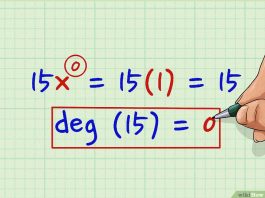 15x⁰ = 15(1) = 15
deg (15) = 0
wikiHow